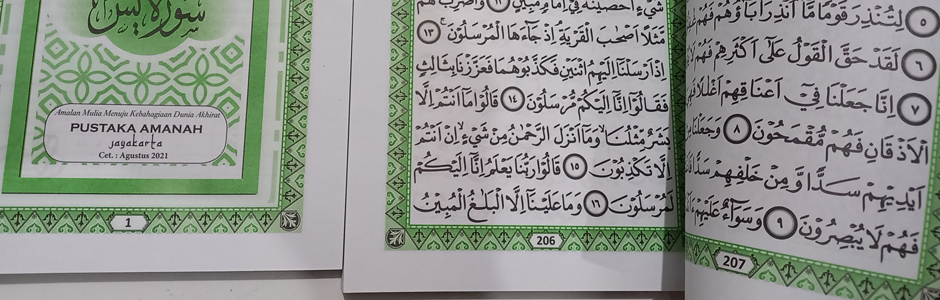 سورة يس
Amalan Mulia Menuju Kebahagiaan Dunia Akhirat
PUSTAKA AMANAH
jayakarta
Cet. : Agustus 2021
1
شَيْءٍ اَحْصَيْنٰهُ فِيْٓ اِمَامٍ مُّبِيْنٍ ١٢ وَاضْرِبْ لَهُمْ
مَّثَلًا اَصْحٰبَ الْقَرْيَةِۘ اِذْ جَآءَهَا الْمُرْسَلُوْنَۚ ١٣
اِذْ اَرْسَلْنَآ اِلَيْهِمُ اثْنَيْنِ فَكَذَّبُوْهُمَا فَعَزَّزْنَا بِثَالِثٍ
فَقَالُوْٓا اِنَّآ اِلَيْكُمْ مُّرْسَلُوْنَ ١٤ قَالُوْا مَآ اَنْتُمْ اِلَّا
بَشَرٌ مِّثْلُنَاۙ وَمَآ اَنْزَلَ الرَّحْمٰنُ مِنْ شَيْءٍۙ اِنْ اَنْتُمْ
اِلَّا تَكْذِبُوْنَ ١٥ قَالُوْا رَبُّنَا يَعْلَمُ اِنَّآ اِلَيْكُمْ
لَمُرْسَلُوْنَ ١٦ وَمَا عَلَيْنَآ اِلَّا الْبَلٰغُ الْمُبِيْنُ
206
٥ لِتُنْذِرَ قَوْمًا مَّآ اُنْذِرَ اٰبَآؤُهُمْ فَهُمْ
٦ لَقَدْ حَقَّ الْقَوْلُ عَلٰٓى اَكْثَرِهِمْ فَهُمْ
٧ اِنَّا جَعَلْنَا فِيْٓ اَعْنَاقِهِمْ اَغْلٰلًا
الْاَذْقَانِ فَهُمْ مُّقْمَحُوْنَ ٨ وَجَعَلْنَا
اَيْدِيْهِمْ سَدًّا وَّمِنْ خَلْفِهِمْ سَدًّا
فَهُمْ لَا يُبْصِرُوْنَ ٩ وَسَوَآءٌ عَلَيْهِمْ
207